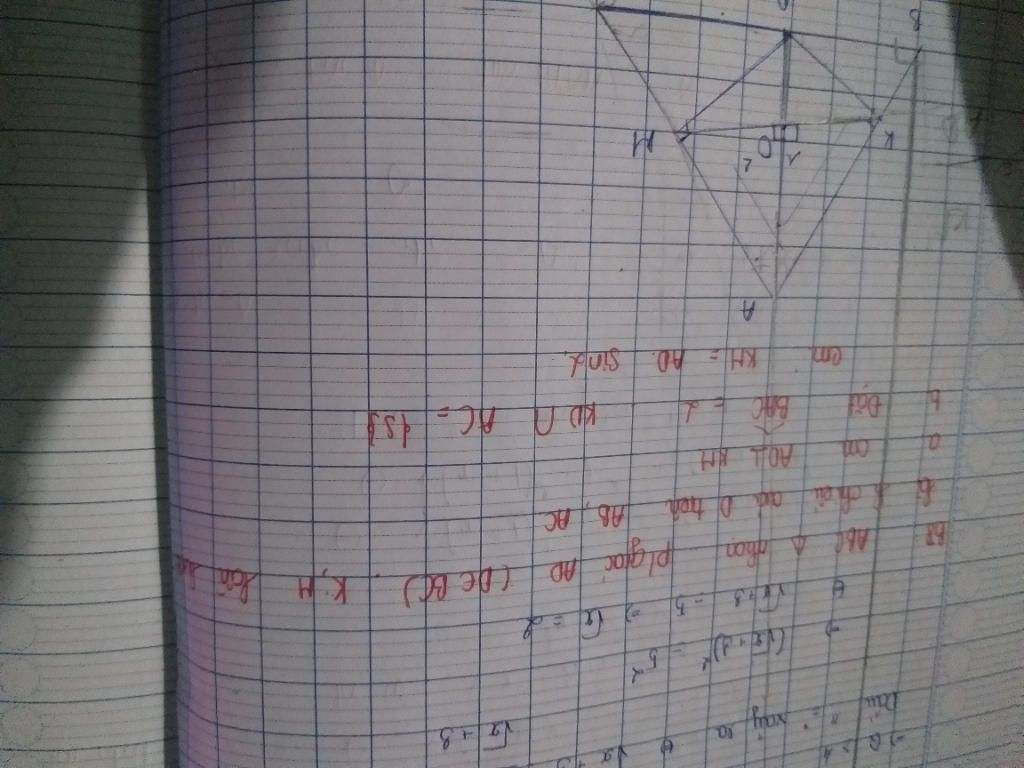 → Q ≥ 4
Dấu "=" xảy ra ⇔ √x + 3 √x + 3
⇒ (√x + 3)² = 5²
⇔ √x + 3 = 5 ⇒ √x = 2
ABC Δ nhọn p/giác AD (D ∈ BC). K, M lần
h chiếu của D trên AB, AC
a cm AD ⊥ KM
b Đặt BAC = α KD ∩ AC = {S}
cm KM = AD. sinα
A
K
1
O
2
M
B